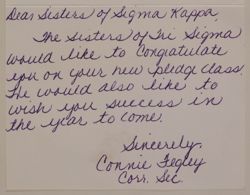 Dear Sisters of Sigma Kappa,
The Sisters of Tri Sigma
would like to Congratulate
you on your new pledge class.
We would also like to
wish you success in
the year to come.
Sincerely,
Connie Fegley
Corr. Sec.